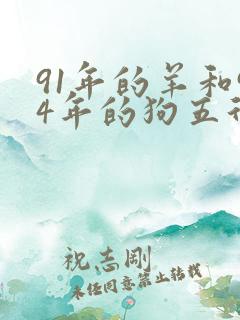 91年的羊和9
4年的狗五行
祝志刚
未任同意禁止转载